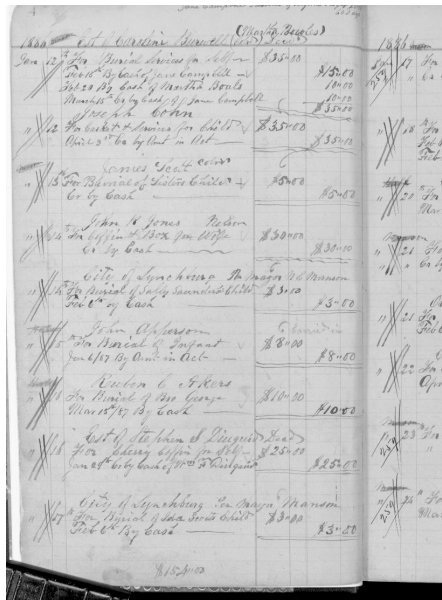 (Martha Beegles)
1886 Est of Caroline Burwell (col) Dec'd
Jan 12 For Burial Services for Self $35.00
Feb 15th By Cash of Jane Campbell $15.00
Feb 20 By Cash of Martha Boals 10.00
March 15th Cr by Cash of Jane Campbell 10.00
$35.00
Joseph Cohn
" 12 For Casket & Services for Child $35.00
April 3rd Cr By Amt in Act $35.00
James Scott Col'd
" 13th For Burial of Sisters Child $5.00
Cr by Cash $5.00
John H Jones Nelson
" 14th For Coffin & Box for Wife $30.00
Cr By Cash $30.00
City of Lynchburg Pr Mayor Manson
" For Burial of Sally Saunders Child $3.00
Feb 6th By Cash $3.00
John Apperson
" 15 For Burial of Infant $8.00
Jan 6/87 By Amt in Act $8.00
Reuben C Akers
For Burial of Bro George $10.00
Mar 15/87 By Cash $10.00
Est of Stephen S Diuguid Dead
" 16 For Cherry Coffin for Self $25.00
Jan 28th By Cash of Diuguid $25.00
City of Lynchburg Per Mayor Manson
" 17 For Burial of Ida Scotts Child $3.00
Feb 6th By Cash $3.00
$154.00
1886
Jan 17 For
" 18 For
Feb
Feb
" 20 For
Mar
" 21 For
" 21 For
Feb
" 22 For
Apr
" 23 For
" 24 For
Mar